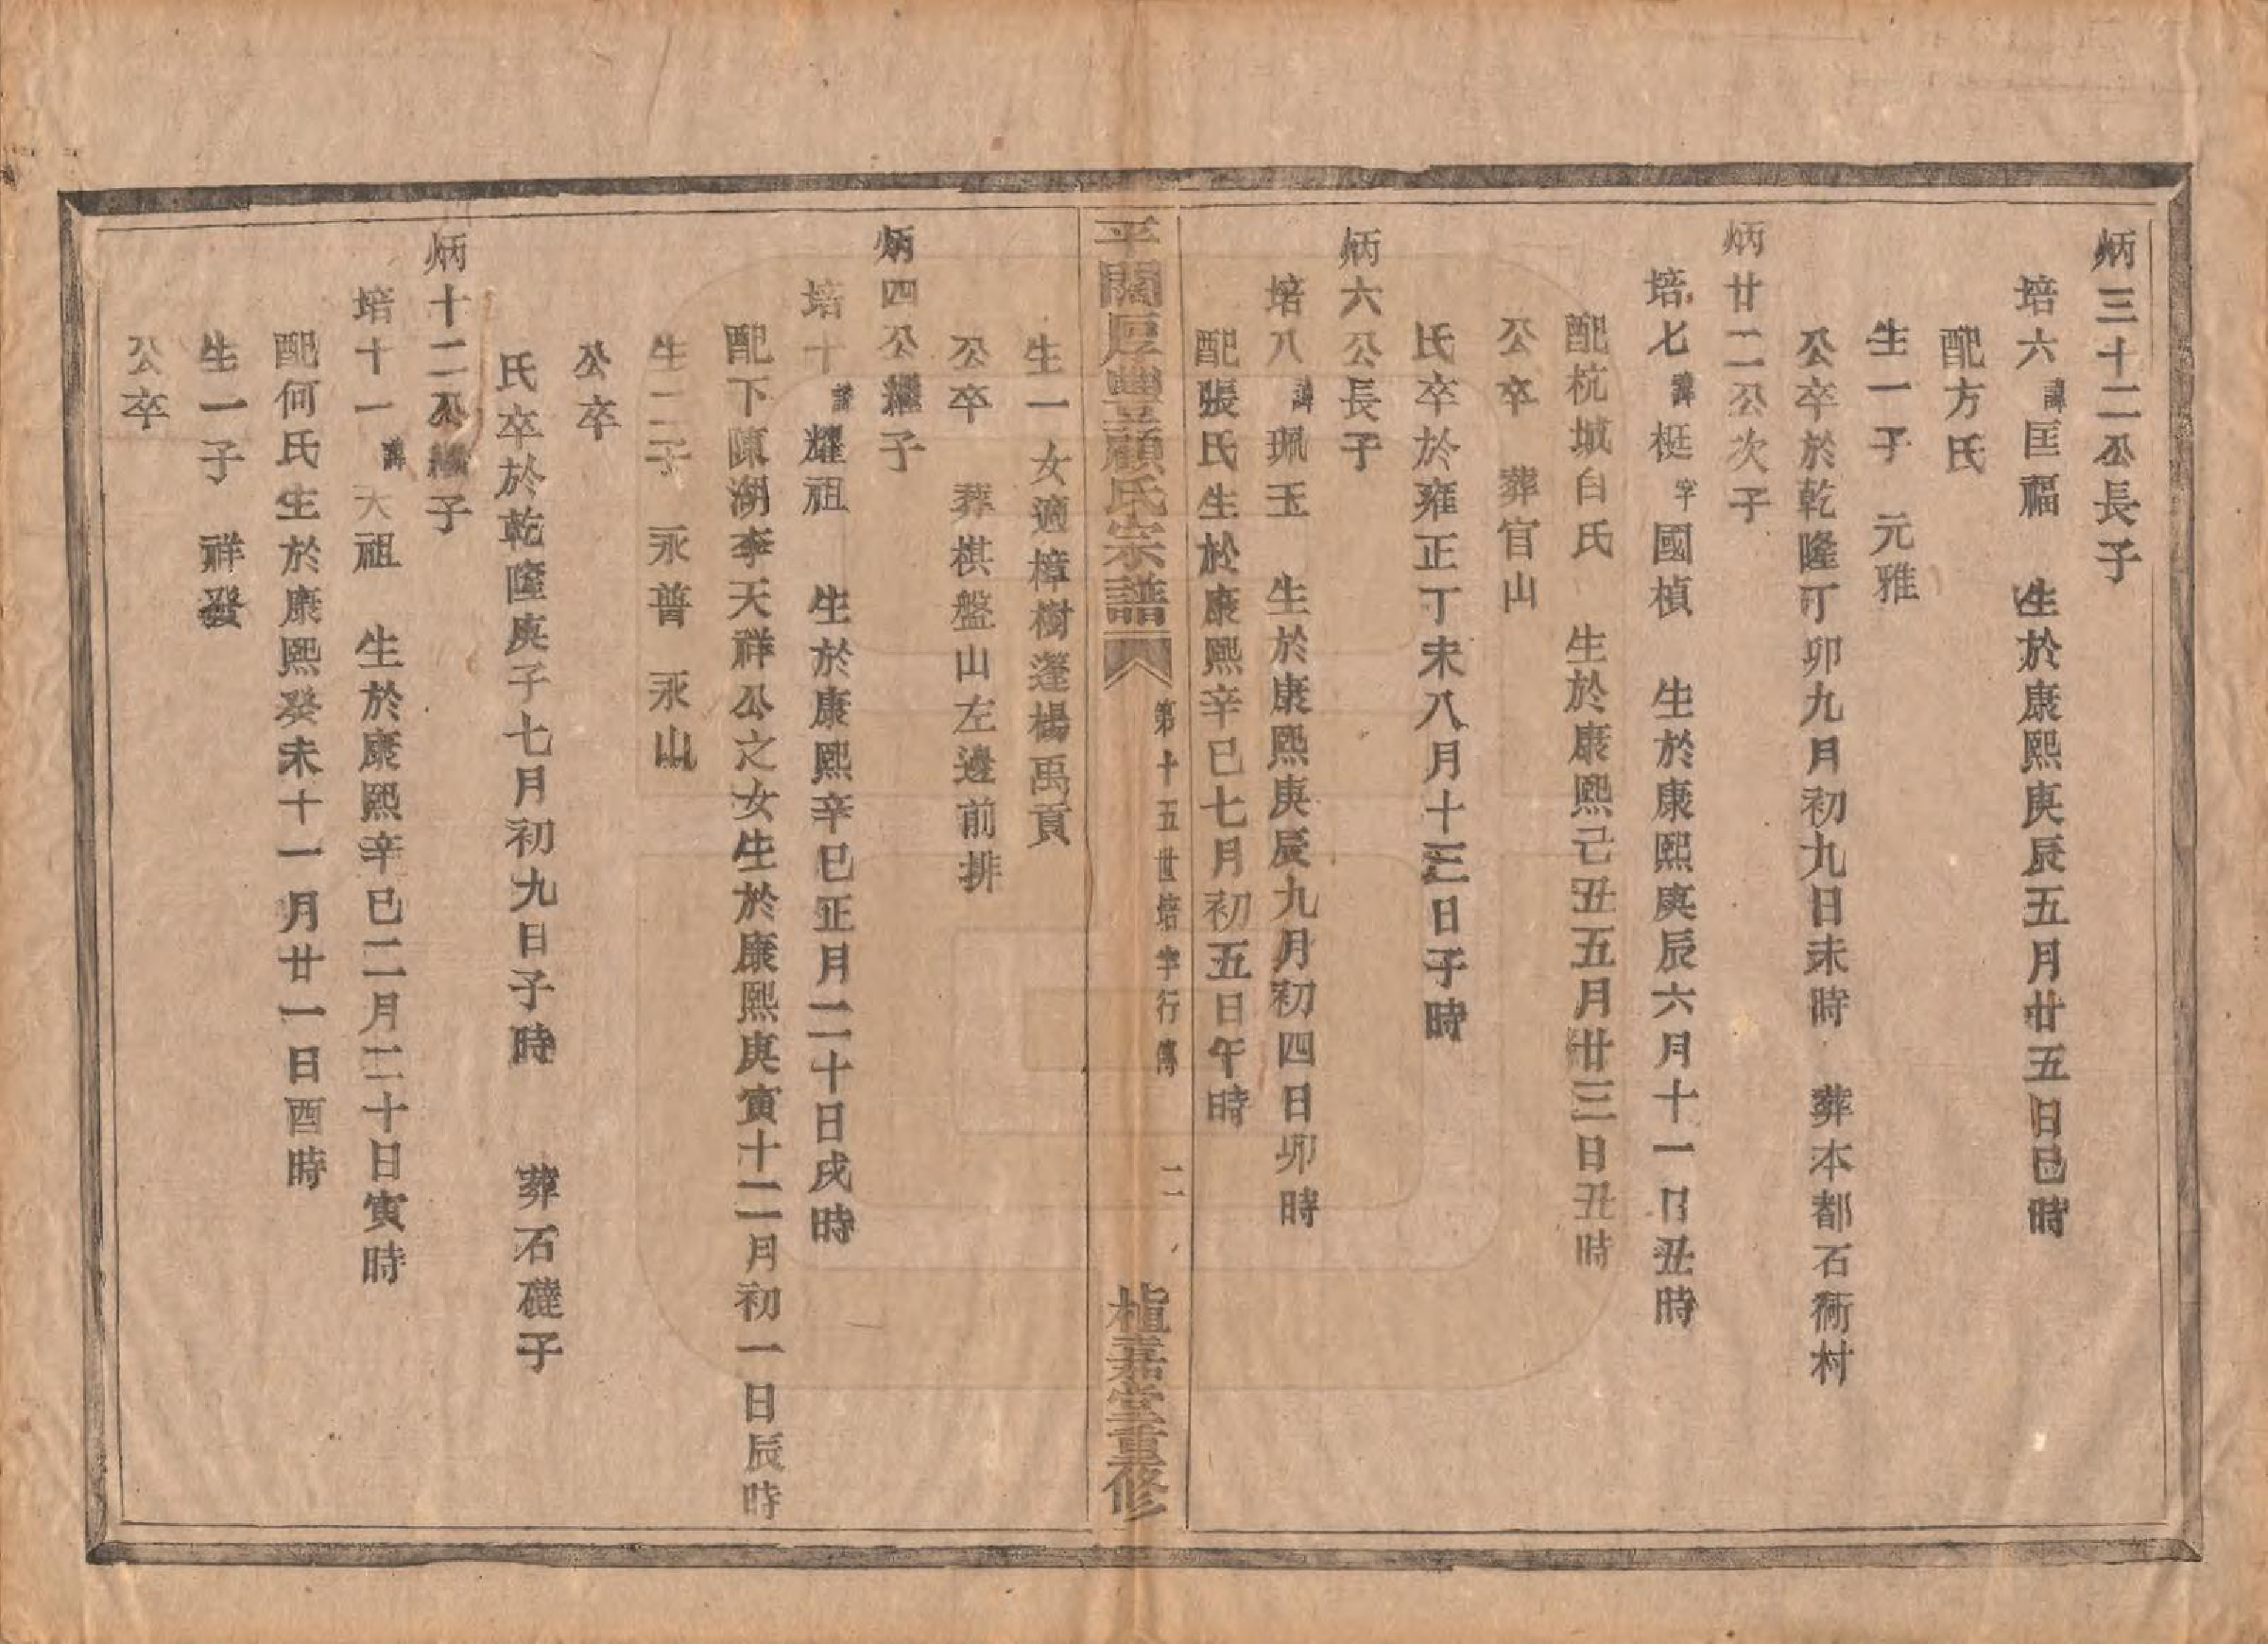 炳三十二公長子
培六諱匡福　生於康熙庚辰五月廿五日巳時
配方氏
生一子　元雅
公卒於乾隆丁卯九月初九日未時　葬本都石衕村
炳廿二公次子
培七諱梃字國楨　生於康熙庚辰六月十一日丑時
配杭城白氏　生於康熙己丑五月廿三日丑時
公卒　葬官山
氏卒於雍正丁未八月十三日子時
炳六公長子
培八諱珮玉　生於康熙庚辰九月初四日卯時
配張氏生於康熙辛巳七月初五日午時
平關厚豐顧氏宗譜
第十五世培字行傳
二
植嘉堂重修
生一女適樟樹蓬楊禹貢
公卒　葬棋盤山左邊前排
炳四公繼子
培十諱耀祖　生於康熙辛巳正月二十日戌時
配下陳湖李天祥公之女生於康熙庚寅十二月初一日辰時
生二子　永普　永山
公卒
氏卒於乾隆庚子七月初九日子時　葬石礶子
炳十二公繼子
培十一諱大祖　生於康熙辛巳二月二十日寅時
配何氏生於康熙癸未十一月廿一日酉時
生一子　祥發
公卒